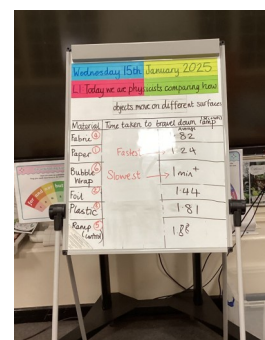 Wednesday 15th January 2025
L.I Today we are physicists comparing how
objects move on different surfaces
Material Time taken to travel down ramp
Average
Fabric ·82
Paper Faster 1·24
Bubble Wrap Slowest → 1 min +
Foil 1·44
Plastic 1·81
Ramp (control) 1·88